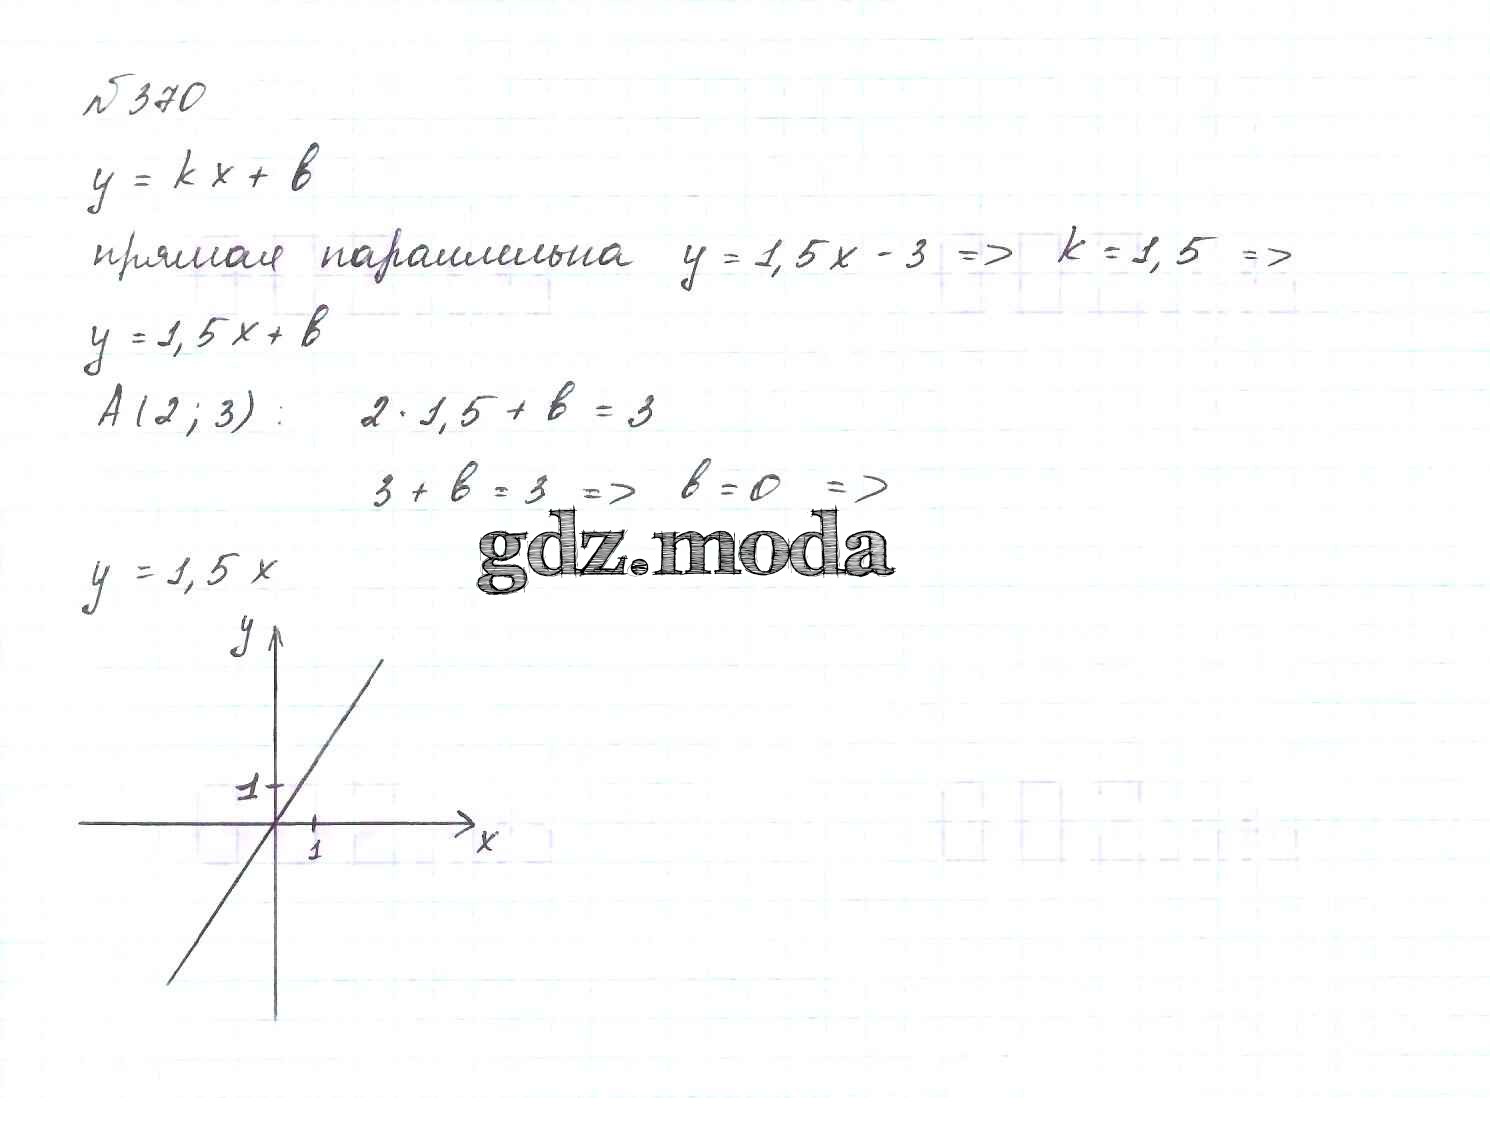 №370
y = kx + b
прямая параллельна y = 1,5x - 3 => k = 1,5 =>
y = 1,5x + b
A(2;3): 2·1,5 + b = 3
3 + b = 3 => b = 0 =>
gdz.moda
y = 1,5x
y
1
1
x